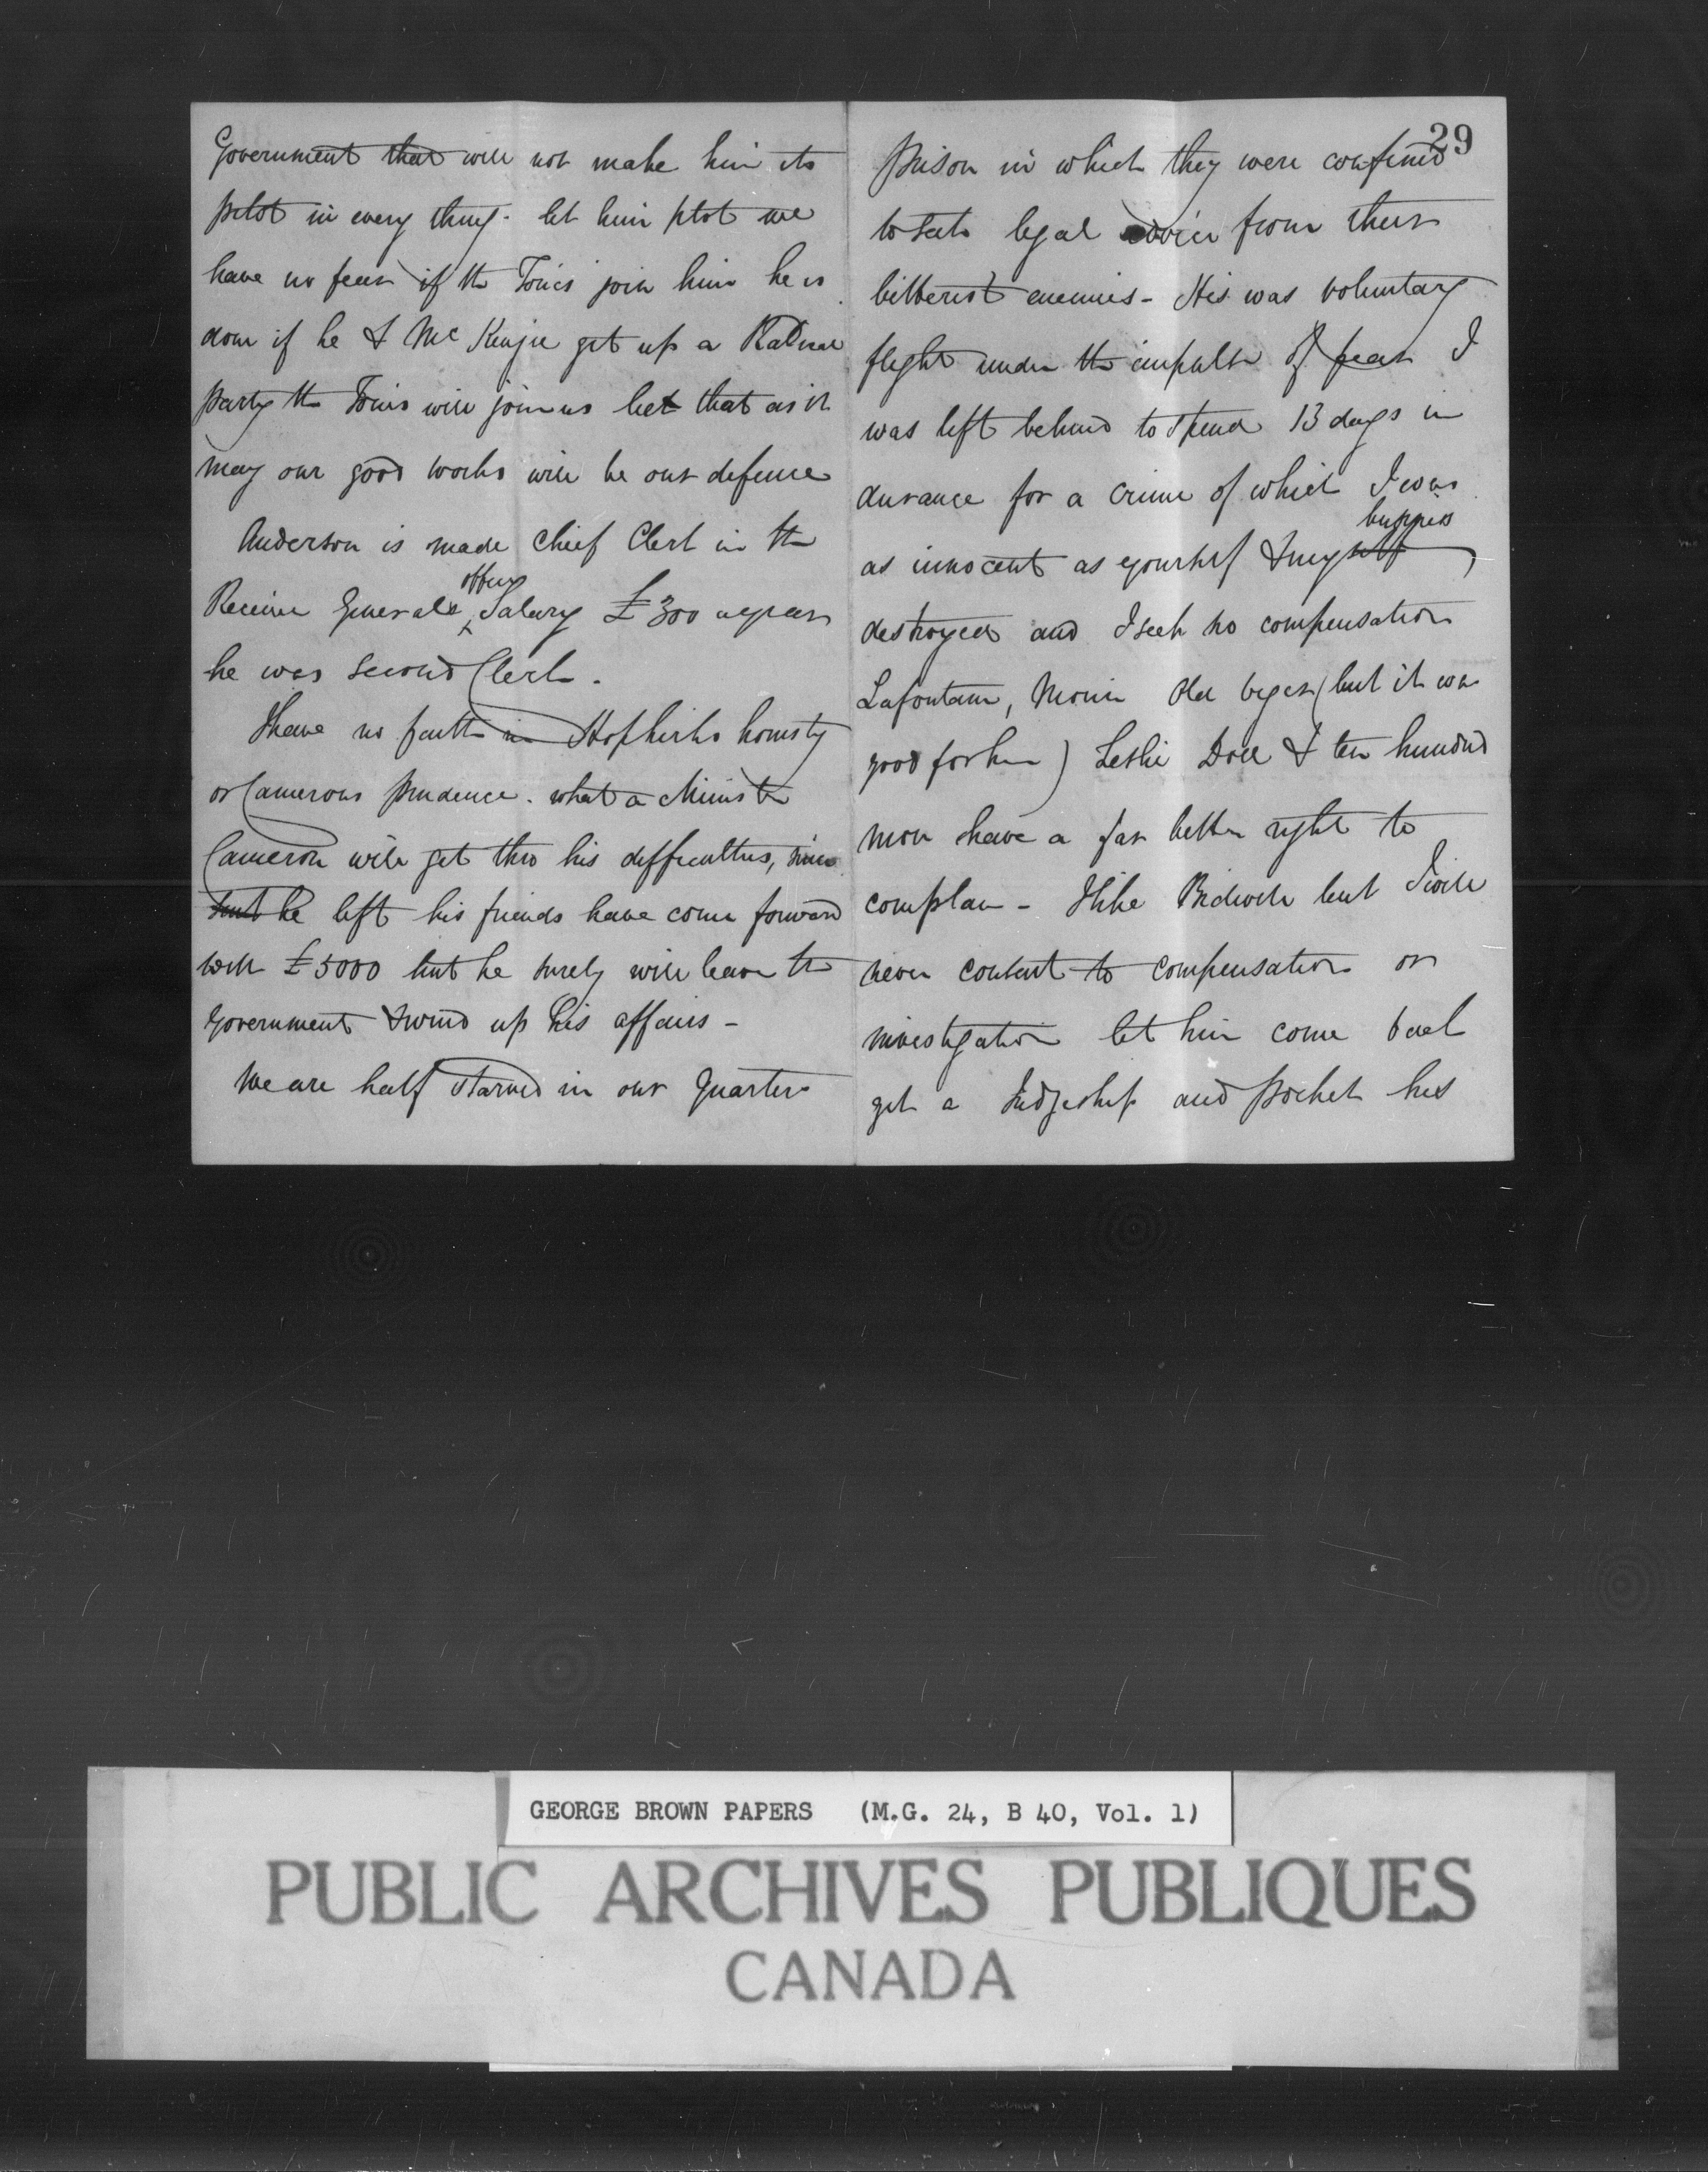 Government that will not make him its
pilot in every thing. let him plot we
have no fear if the Tories join him he is
done if he & McKenzie get up a Radical
party the Tories will join us let that as it
may our good works will be our defence
Anderson is made chief Clerk in the
Receiver Generals office Salary £300 a year
he was second Clerk.
I have no faith in Hopkirks honesty
or Camerons prudence. what a Minister
Cameron will get thro his difficulties, since
but he left his friends have come forward
with £5000 but he surely will leave the
Government & wind up his affairs -
We are half starved in our Quarters
29
prison in which they were confined
to seek legal advice from their
bitterest enemies - His was voluntary
flight under the impulse of fear I
was left behind to spend 13 days in
durance for a crime of which I was
as innocent as yourself & my self business
destroyed and I seek no compensation
Lafontain, Morin Old Viger (but it was
good for him) Leslie & ten hundred
more have a far better right to
complain - I like Bidwell but I will
never consent to compensation or
investigation let him come back
get a Judgeship and pocket his
GEORGE BROWN PAPERS (M.G. 24, B 40, Vol. 1)
PUBLIC ARCHIVES PUBLIQUES
CANADA